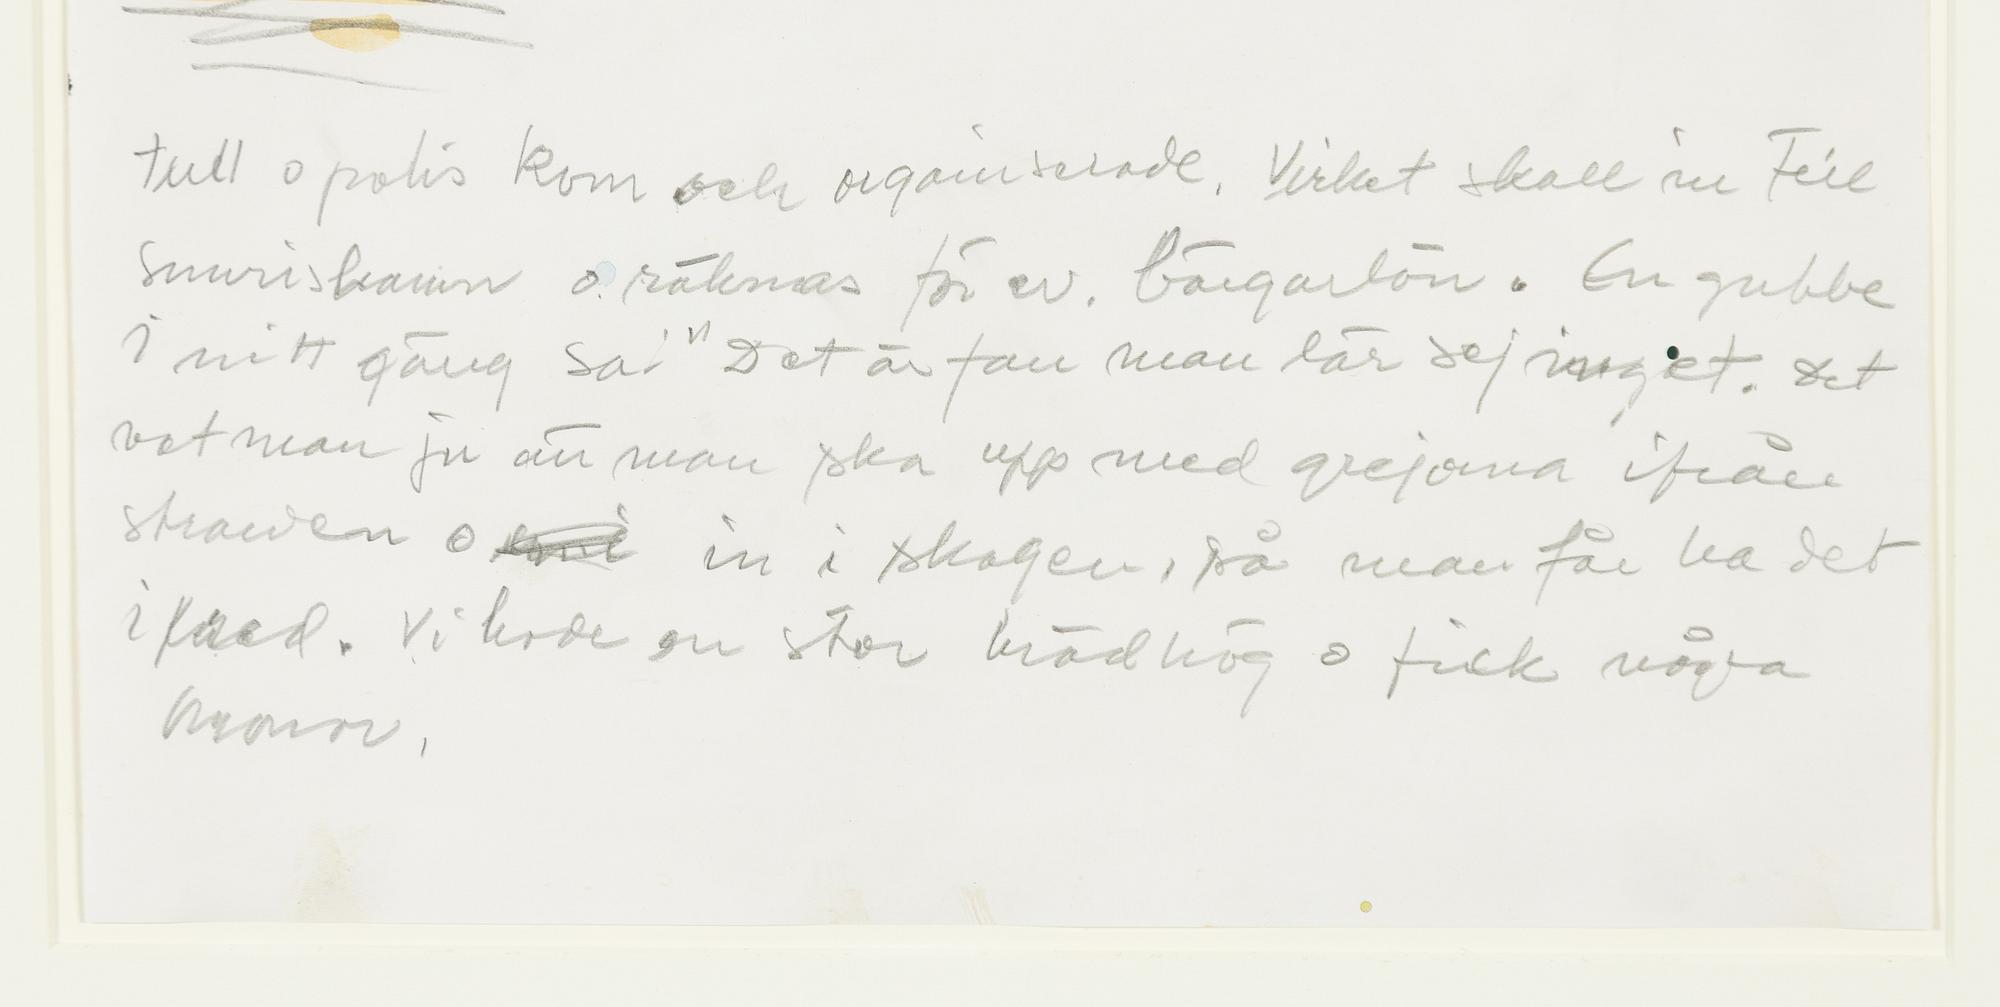 tull o polis kom och organiserade. Virket skall in till
Smurishamn o. räknas för ev. bärgarlön. En gubbe
i mitt gäng sa: "Det är fan man lär sej inget. Det
vet man ju att man ska upp med grejorna ifrån
stranden o in i skogen, så man får ha det
i fred. Vi hade en stor brädhög o fick några
kronor.